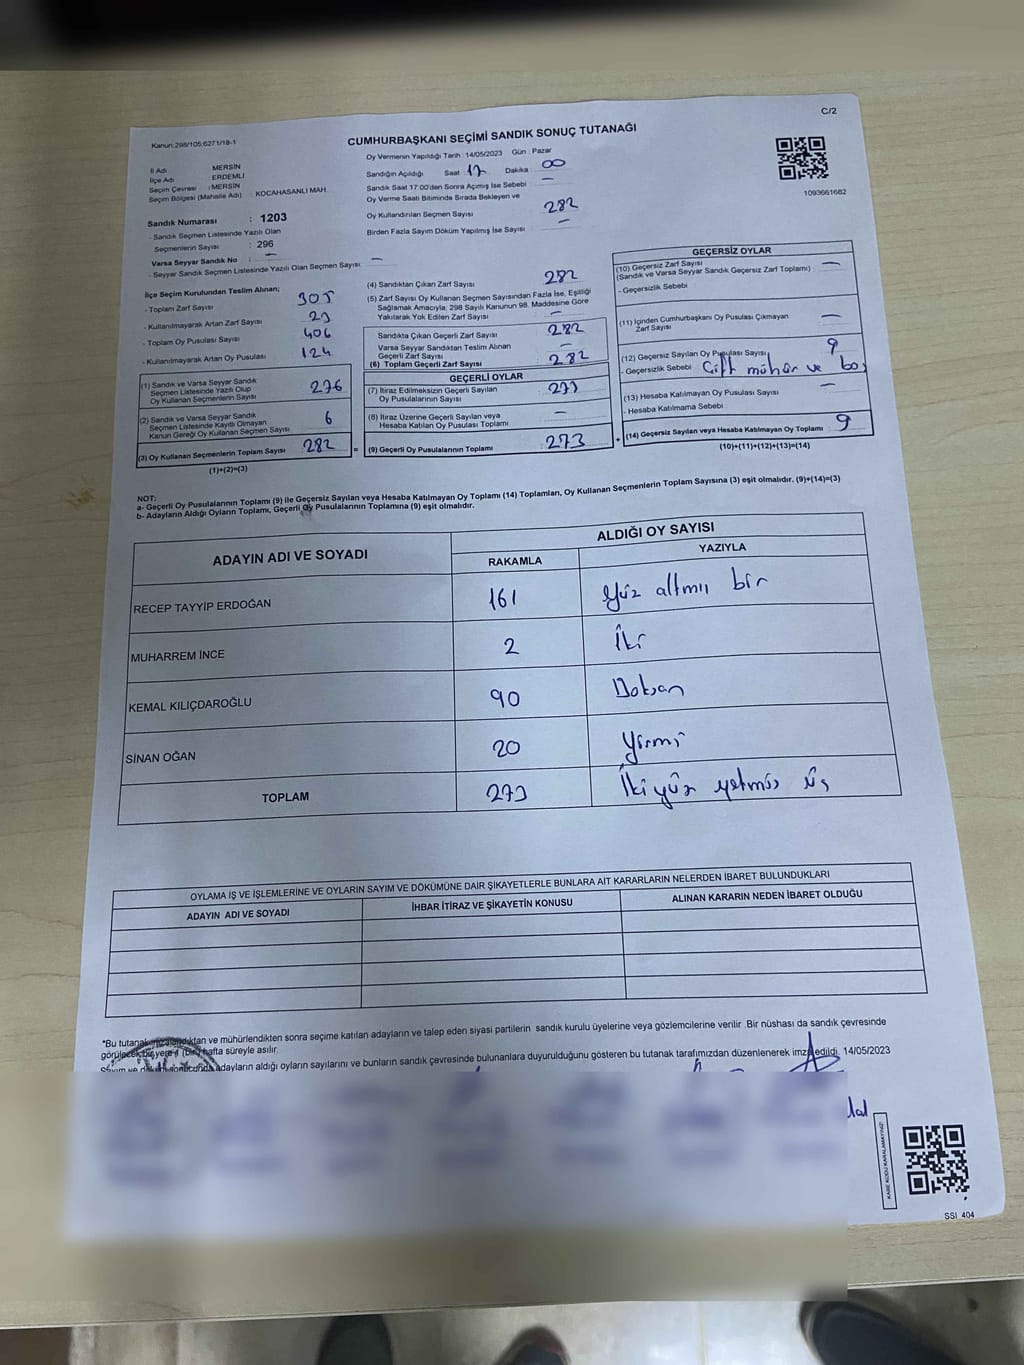 C/2
Kanun:298/105;6271/18-1
CUMHURBAŞKANI SEÇİMİ SANDIK SONUÇ TUTANAĞI
İl Adı MERSİN
İlçe Adı ERDEMLİ
Seçim Çevresi : MERSİN
Seçim Bölgesi (Mahalle Adı) : KOCAHASANLI MAH.
Sandık Numarası : 1203
- Sandık Seçmen Listesinde Yazılı Olan
Seçmenlerin Sayısı : 296
Varsa Seyyar Sandık No : —
- Seyyar Sandık Seçmen Listesinde Yazılı Olan Seçmen Sayısı: —
Oy Vermenin Yapıldığı Tarih : 14/05/2023 Gün : Pazar
Sandığın Açıldığı Saat 17 Dakika : 00
Sandık Saat 17:00'dan Sonra Açılmış İse Sebebi —
Oy Verme Saati Bitiminde Sırada Bekleyen ve
Oy Kullandırılan Seçmen Sayısı 282
Birden Fazla Sayım Döküm Yapılmış İse Sayısı : —
1093661662
İlçe Seçim Kurulundan Teslim Alınan;
- Toplam Zarf Sayısı 305
- Kullanılmayarak Artan Zarf Sayısı 23
- Toplam Oy Pusulası Sayısı 406
- Kullanılmayarak Artan Oy Pusulası 124
(1) Sandık ve Varsa Seyyar Sandık
Seçmen Listesinde Yazılı Olup
Oy Kullanan Seçmenlerin Sayısı 276
(2) Sandık ve Varsa Seyyar Sandık
Seçmen Listesinde Kayıtlı Olmayan
Kanun Gereği Oy Kullanan Seçmen Sayısı 6
(3) Oy Kullanan Seçmenlerin Toplam Sayısı 282
(1)+(2)=(3)
(4) Sandıktan Çıkan Zarf Sayısı 282
(5) Zarf Sayısı Oy Kullanan Seçmen Sayısından Fazla İse, Eşitliği
Sağlamak Amacıyla; 298 Sayılı Kanunun 98. Maddesine Göre
Yakılarak Yok Edilen Zarf Sayısı —
Sandıkta Çıkan Geçerli Zarf Sayısı 282
Varsa Seyyar Sandıktan Teslim Alınan
Geçerli Zarf Sayısı —
(6) Toplam Geçerli Zarf Sayısı 282
GEÇERLİ OYLAR
(7) İtiraz Edilmeksizin Geçerli Sayılan
Oy Pusulalarının Sayısı 273
(8) İtiraz Üzerine Geçerli Sayılan veya
Hesaba Katılan Oy Pusulası Toplamı —
= (9) Geçerli Oy Pusulalarının Toplamı 273 +
GEÇERSİZ OYLAR
(10) Geçersiz Zarf Sayısı
(Sandık ve Varsa Seyyar Sandık Geçersiz Zarf Toplamı) : —
- Geçersizlik Sebebi
(11) İçinden Cumhurbaşkanı Oy Pusulası Çıkmayan
Zarf Sayısı —
(12) Geçersiz Sayılan Oy Pusulası Sayısı 9
- Geçersizlik Sebebi Çift mühür ve boş
(13) Hesaba Katılmayan Oy Pusulası Sayısı —
- Hesaba Katılmama Sebebi
(14) Geçersiz Sayılan veya Hesaba Katılmayan Oy Toplamı : 9
(10)+(11)+(12)+(13)=(14)
NOT:
a- Geçerli Oy Pusulalarının Toplamı (9) ile Geçersiz Sayılan veya Hesaba Katılmayan Oy Toplamı (14) Toplamları, Oy Kullanan Seçmenlerin Toplam Sayısına (3) eşit olmalıdır. (9)+(14)=(3)
b- Adayların Aldığı Oyların Toplamı, Geçerli Oy Pusulalarının Toplamına (9) eşit olmalıdır.
ADAYIN ADI VE SOYADI ALDIĞI OY SAYISI
RAKAMLA YAZIYLA
RECEP TAYYİP ERDOĞAN 161 Yüz altmış bir
MUHARREM İNCE 2 İki
KEMAL KILIÇDAROĞLU 90 Doksan
SİNAN OĞAN 20 Yirmi
TOPLAM 273 İki yüz yetmiş üç
OYLAMA İŞ VE İŞLEMLERİNE VE OYLARIN SAYIM VE DÖKÜMÜNE DAİR ŞİKAYETLERLE BUNLARA AİT KARARLARIN NELERDEN İBARET BULUNDUKLARI
ADAYIN ADI VE SOYADI İHBAR İTİRAZ VE ŞİKAYETİN KONUSU ALINAN KARARIN NEDEN İBARET OLDUĞU
*Bu tutanak imzalandıktan ve mühürlendikten sonra seçime katılan adayların ve talep eden siyasi partilerin sandık kurulu üyelerine veya gözlemcilerine verilir .Bir nüshası da sandık çevresinde
görülecek bir yere 1 (bir) hafta süreyle asılır.
Sayım ve döküm sonucunda adayların aldığı oyların sayılarını ve bunların sandık çevresinde bulunanlara duyurulduğunu gösteren bu tutanak tarafımızdan düzenlenerek imza edildi. 14/05/2023
KARE KODU KARALAMAYINIZ!
SSI 404